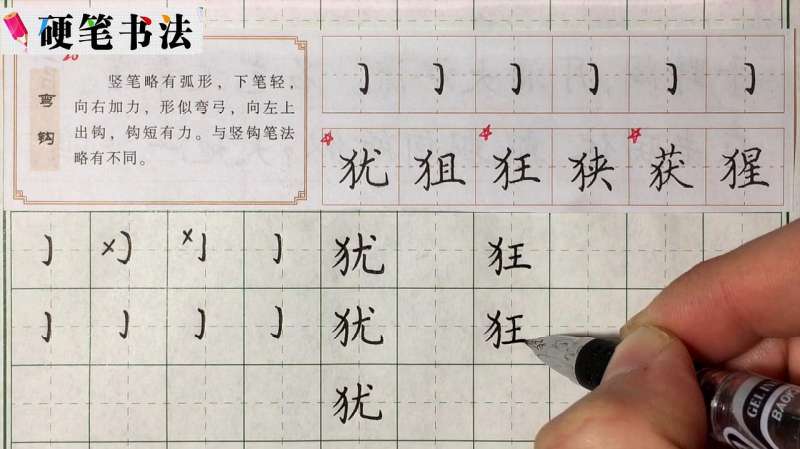 硬笔书法
弯钩
竖笔略有弧形，下笔轻，
向右加力，形似弯弓，向左上
出钩，钩短有力。与竖钩笔法
略有不同。
犹 狙 狂 狭 获 猩
犹 狂
犹 狂
犹
GEL IN